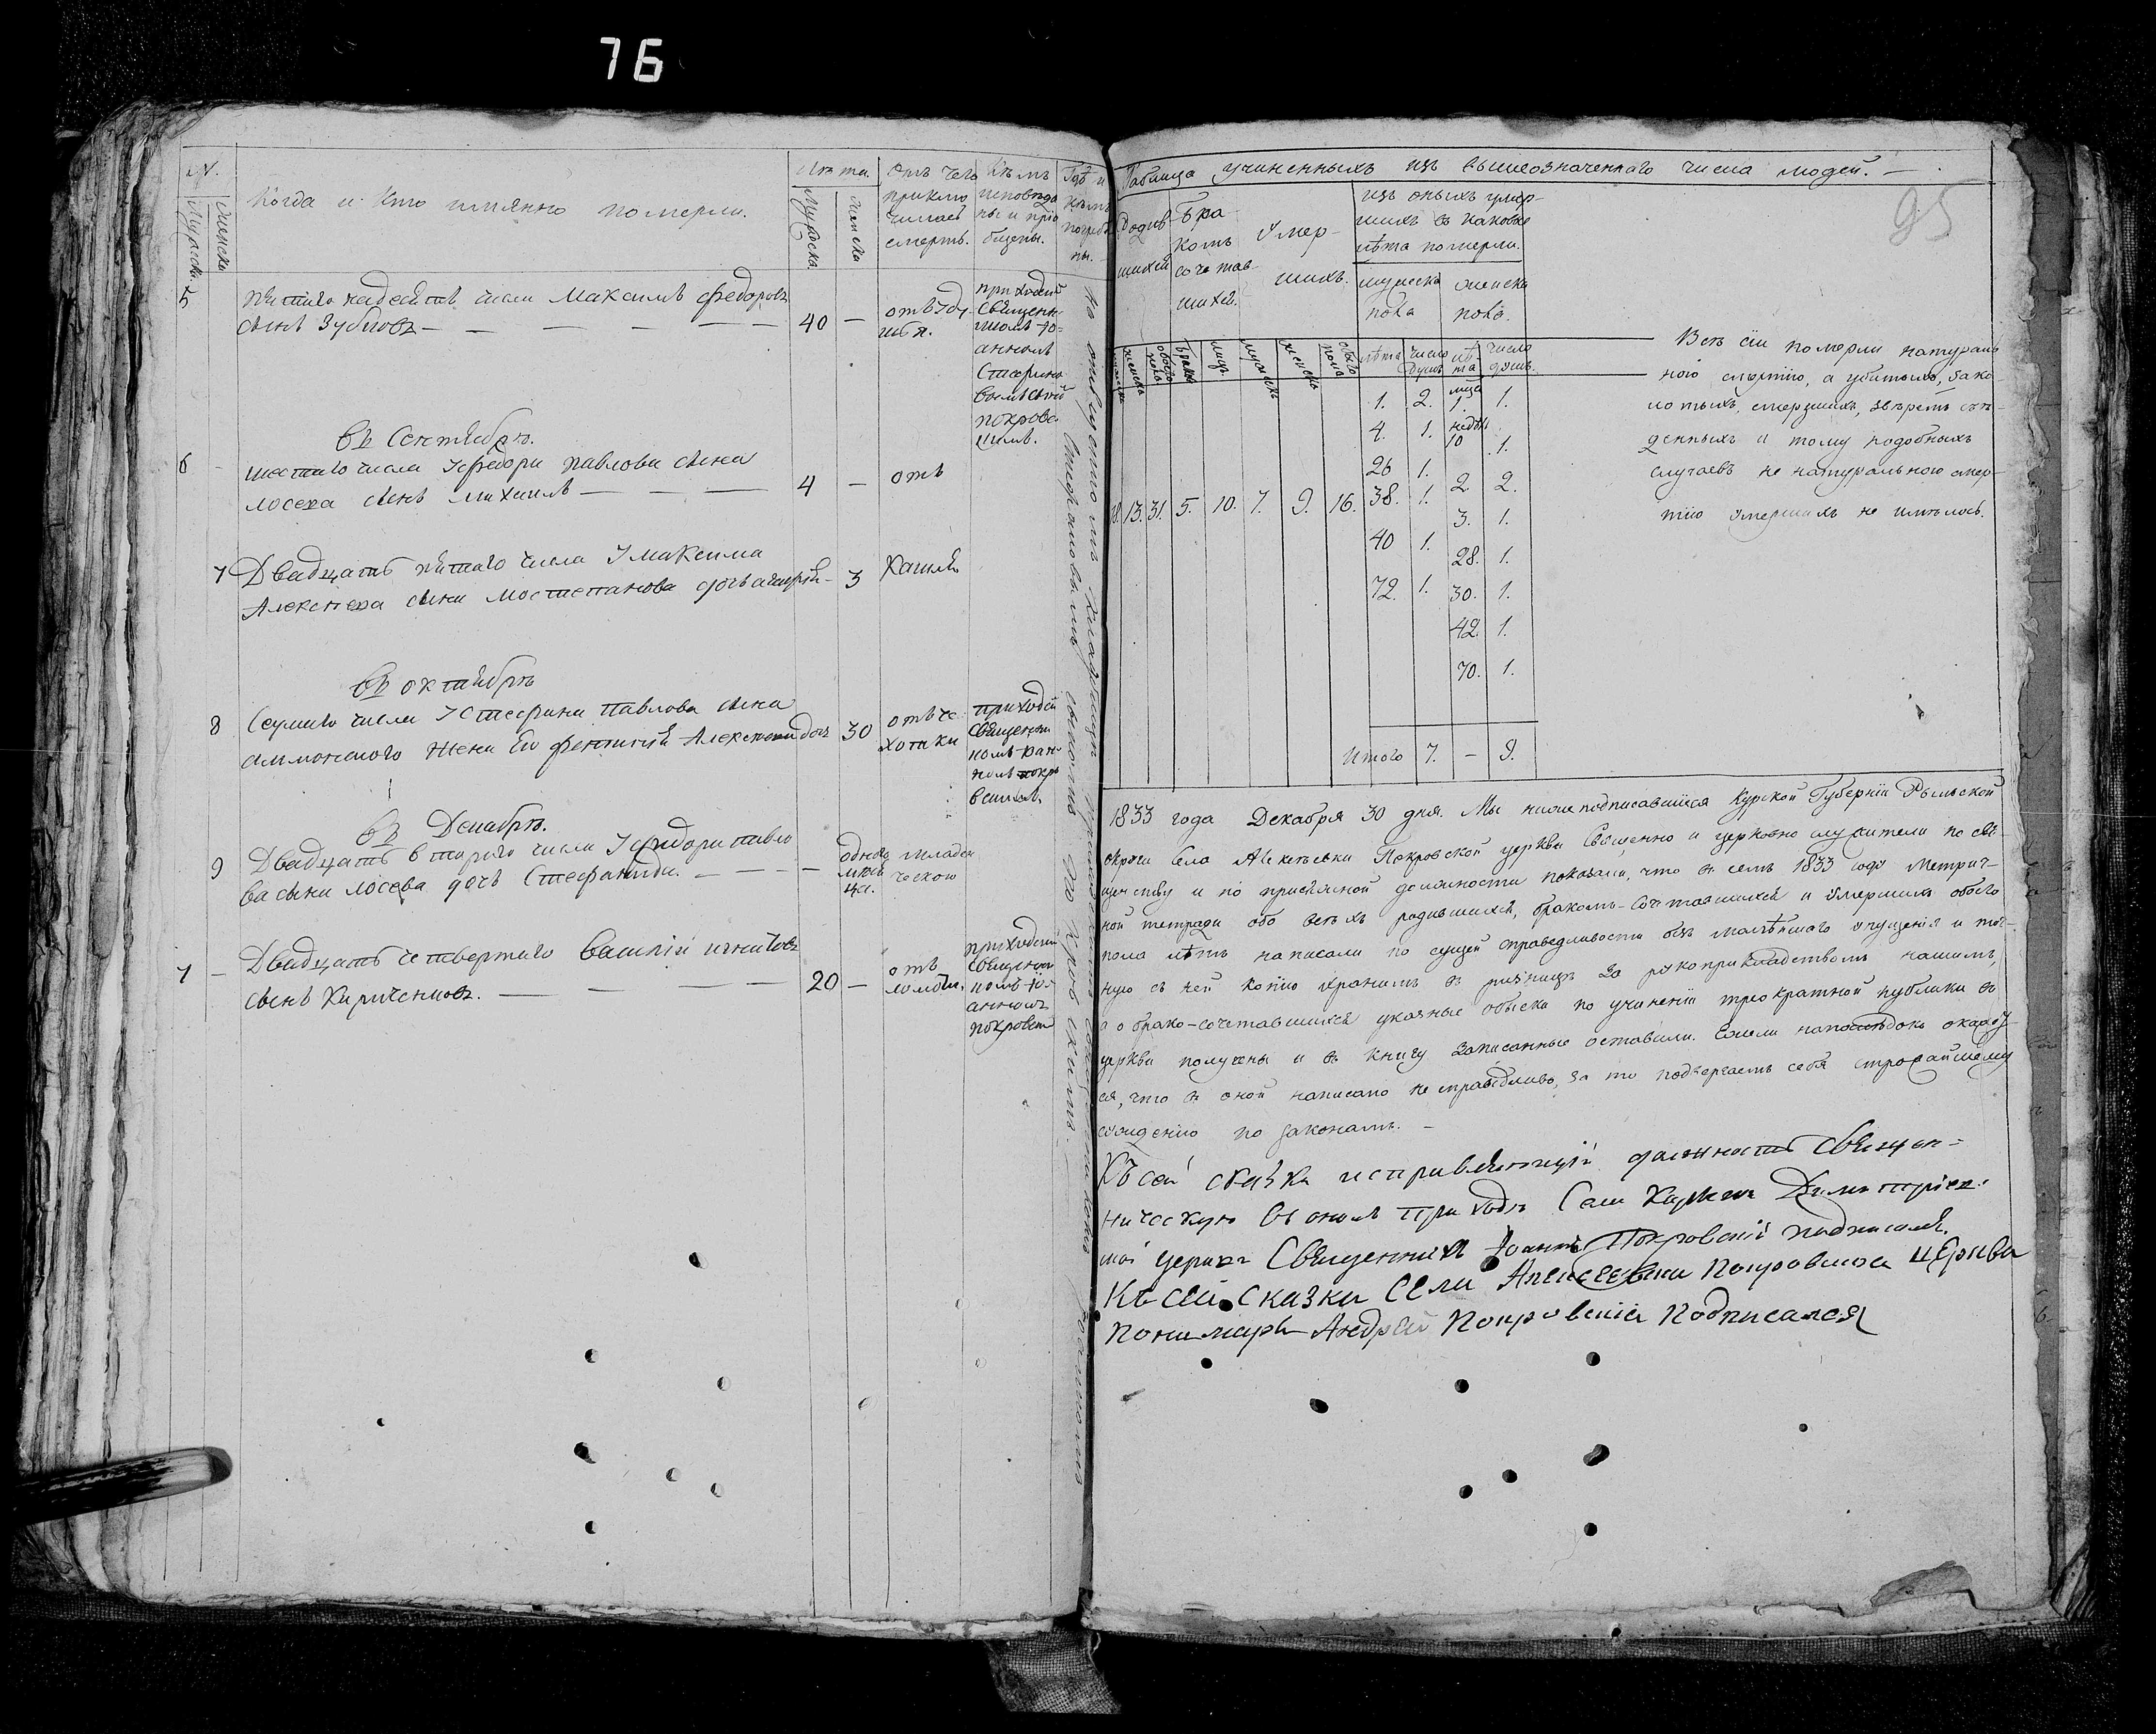 76
№.
Мужеска
Женска
Когда и кто имянно померли.
Лѣта.
Мужеска.
женска
Отъ чего
приклю
чилась
смерть.
Кѣмъ
исповѣда
ны и прiо
бщены.
Гдѣ и
кѣмъ
погребе
ны.
5
пятаго надесять числа Максимъ Федоровъ
сынъ Зубковъ — — — — — —
40 —
приходск
Священ
никомъ Iо-
анномъ
Стефано
вымъ
покровс
кимъ.
въ Сентябрѣ.
6
шестаго числа У Федора Павлова сына
Лосева сынъ Михаилъ — — —
4 —
отъ
7 Двадцать пятаго числа У Максима
Алексеева сына
3
Кашля
въ октябрѣ
8
Седмаго числа У Стефана Павлова сына
жена Его
30
отъ че
хотки
приходск
Священни
комъ Iоан
номъ покро
вскимъ.
въ Декабрѣ.
9
Двадцать втораго числа У Федора Павло
ва сына Лосева дочь Стефанида. — — — —
одного
мѣся
ца.
младен
ческою
7 —
Двадцать четвертаго Василiй Игнатовъ
сынъ Кириченковъ. — — — —
20 —
отъ
ломоты.
приходскимъ
Священни
комъ Iо-
анномъ
покровск
Таблица учиненныхъ изъ вышеозначеннаго числа людей. —
95
Родив
шихся
Бра
комъ
сочетав
шихся.
Умер-
шихъ.
изъ оныхъ умер-
шихъ въ каковые
лѣта померли.
мужеска
пола
женска
пола.
женскъ
обоего
пола
браковъ
лицъ.
мужескъ
женскъ
обоего
пола
лѣта
число
душъ
лѣ-
та
число
душъ.
1. 2. мѣся 1. 1.
4. 1. недѣль 10 1.
26 1. 2 2.
18. 13. 31. 5. 10. 7. 9. 16. 38. 1. 3. 1.
40 1. 28. 1.
72. 1. 30. 1.
42. 1.
70. 1.
Итого 7. — 9.
Всѣ сiи померли натураль
ною смертiю, а убитыхъ, зако-
лотыхъ, змерзшихъ, звѣремъ съѣ-
денныхъ и тому подобныхъ
случаевъ не натуральною смер-
тiю умершихъ не имѣлось.
1833 года Декабря 30 дня. Мы нижеподписавшiяся Курской Губернiи Рыльской
округи села Алексѣевки Покровской церкви Священно и церковно служители по свя-
щенству и по присяжной должности показали, что въ семъ 1833 году Метрич-
ной тетради обо всѣхъ родившихся, бракомъ-сочетавшихся и умершихъ обоего
пола лѣтъ написали по сущей справедливости безъ малѣйшаго упущенiя и точ-
ную съ ней копiю хранить въ ризницѣ за рукоприкладствомъ нашимъ,
а о брако-сочетавшихся указные обыски по учиненiи троекратной публики въ
церкви получены и въ книгу записанные оставили. Ежели напослѣдокъ окажет-
ся, что въ оной написано не справедливо, за то подвергаемъ себя строжайшему
сужденiю по законамъ. —
Къ сей сказки исправляющiй должность Священ-
ническую въ ономъ приходѣ Села Димитрiев-
кой церкви Священникъ Iоаннъ Покровскiй подписался.
Къ сей Сказки Села Алексеевки Покровской церкви
Пономарь Андрей Покровскiй Подписался